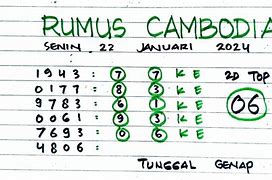 RUMUS CAMBODIA
SENIN 22 JANUARI 2024
1943 : 7 7 KE 2D TOP
0177 : 8 3 KE 06
9783 : 6 1 KE
0061 : 9 3 KE
7693 : 0 6 KE
4806 :
TUNGGAL GENAP